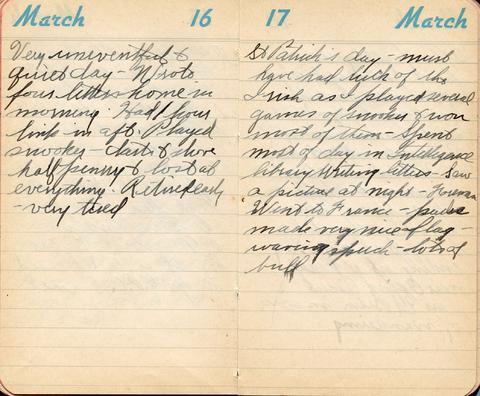 March 16
Very uneventful &
quiet day - Wrote
four letters home in
morning. Had 1 hour
link in aft. Played
snooker - darts & shove
half penny & lost at
everything. Retired early
- very tired
17 March
St Patrick's day - must
have had luck of the
Irish as I played several
games of snooker & won
most of them - Spent
most of day in Intelligence
Library writing letters - Saw
a picture at night - Foreman
Went to France - padre
made very nice flag -
waving speech - lots of
bull